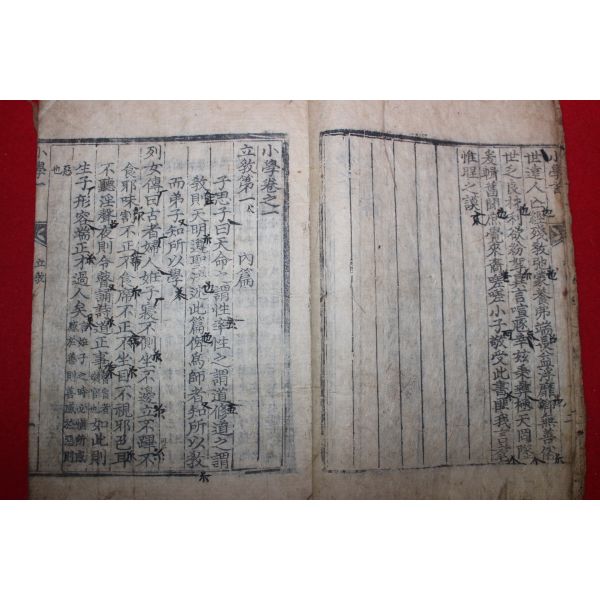 世遠人亡經殘敎弛蒙養弗端長益浮靡鄕無善俗
世乏良材利欲紛挐異言喧豗幸玆秉彝極天罔墜
爰輯舊聞庶覺來裔嗟嗟小子敬受此書匪我言耄
惟聖之謨
小學卷之一
立敎第一 內篇
子思子曰天命之謂性率性之謂道修道之謂
敎則天明遵聖法述此篇俾爲師者知所以敎
而弟子知所以學
列女傳曰古者婦人妊子寢不側坐不邊立不蹕不
食邪味割不正不食席不正不坐目不視邪色耳
不聽淫聲夜則令瞽誦詩道正事如此則
生子形容端正才過人矣妊子之時必愼所感感於善則善感於惡則
惡也
小學一
立敎